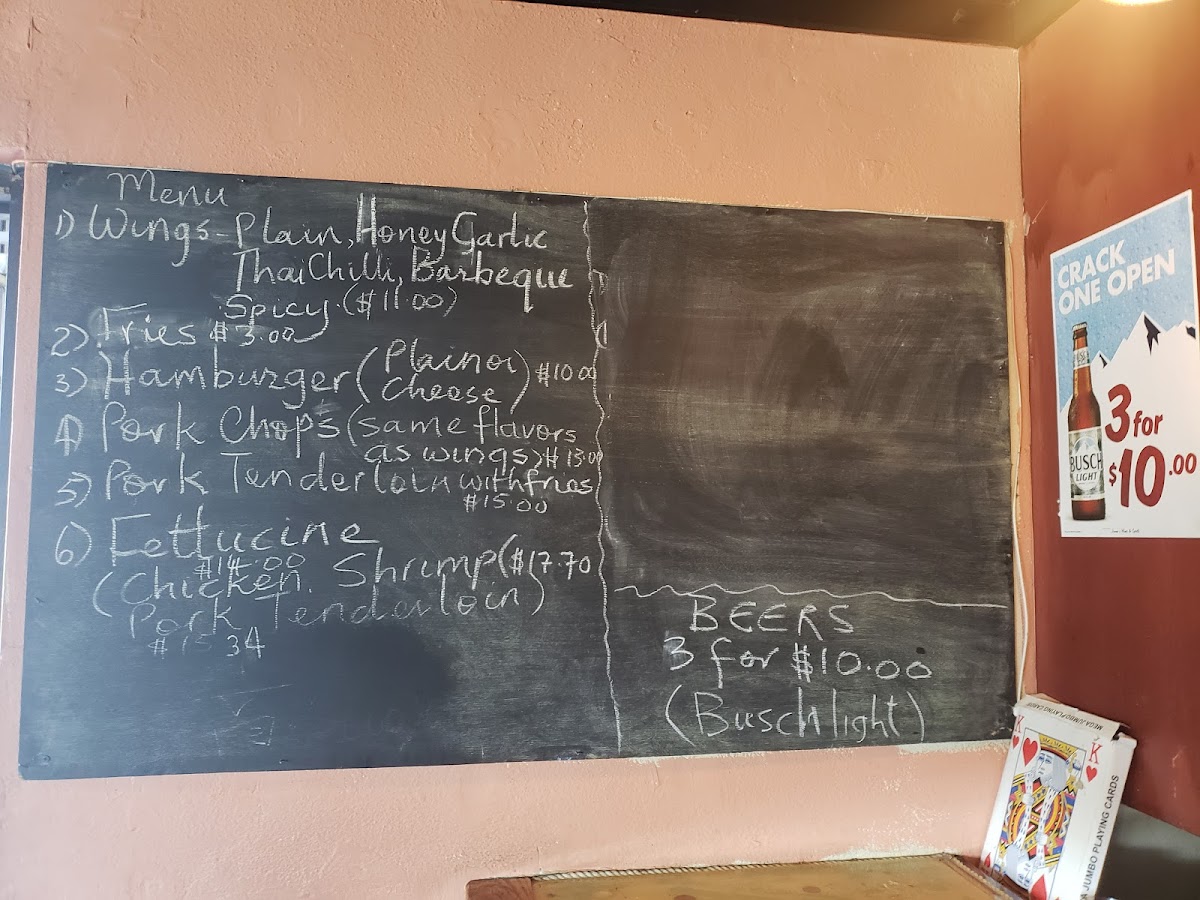 Menu
1) Wings - Plain, Honey Garlic
Thai Chilli, Barbeque
Spicy. ($11.00)
2) Fries $3.00
3) Hamburger (Plain or Cheese) $10.00
4) Pork Chops (same flavors
as wings) $13.00
5) Pork Tenderloin with fries
$15.00
6) Fettucine
$14.00
(Chicken. Shrimp ($17.70
Pork Tenderloin)
$15 34
BEERS
3 for $10.00
(Busch light)
CRACK
ONE OPEN
3 for
$10.00
BUSCH
LIGHT
MEGA JUMBO PLAYING CARDS
K
K
JUMBO PLAYING CARDS